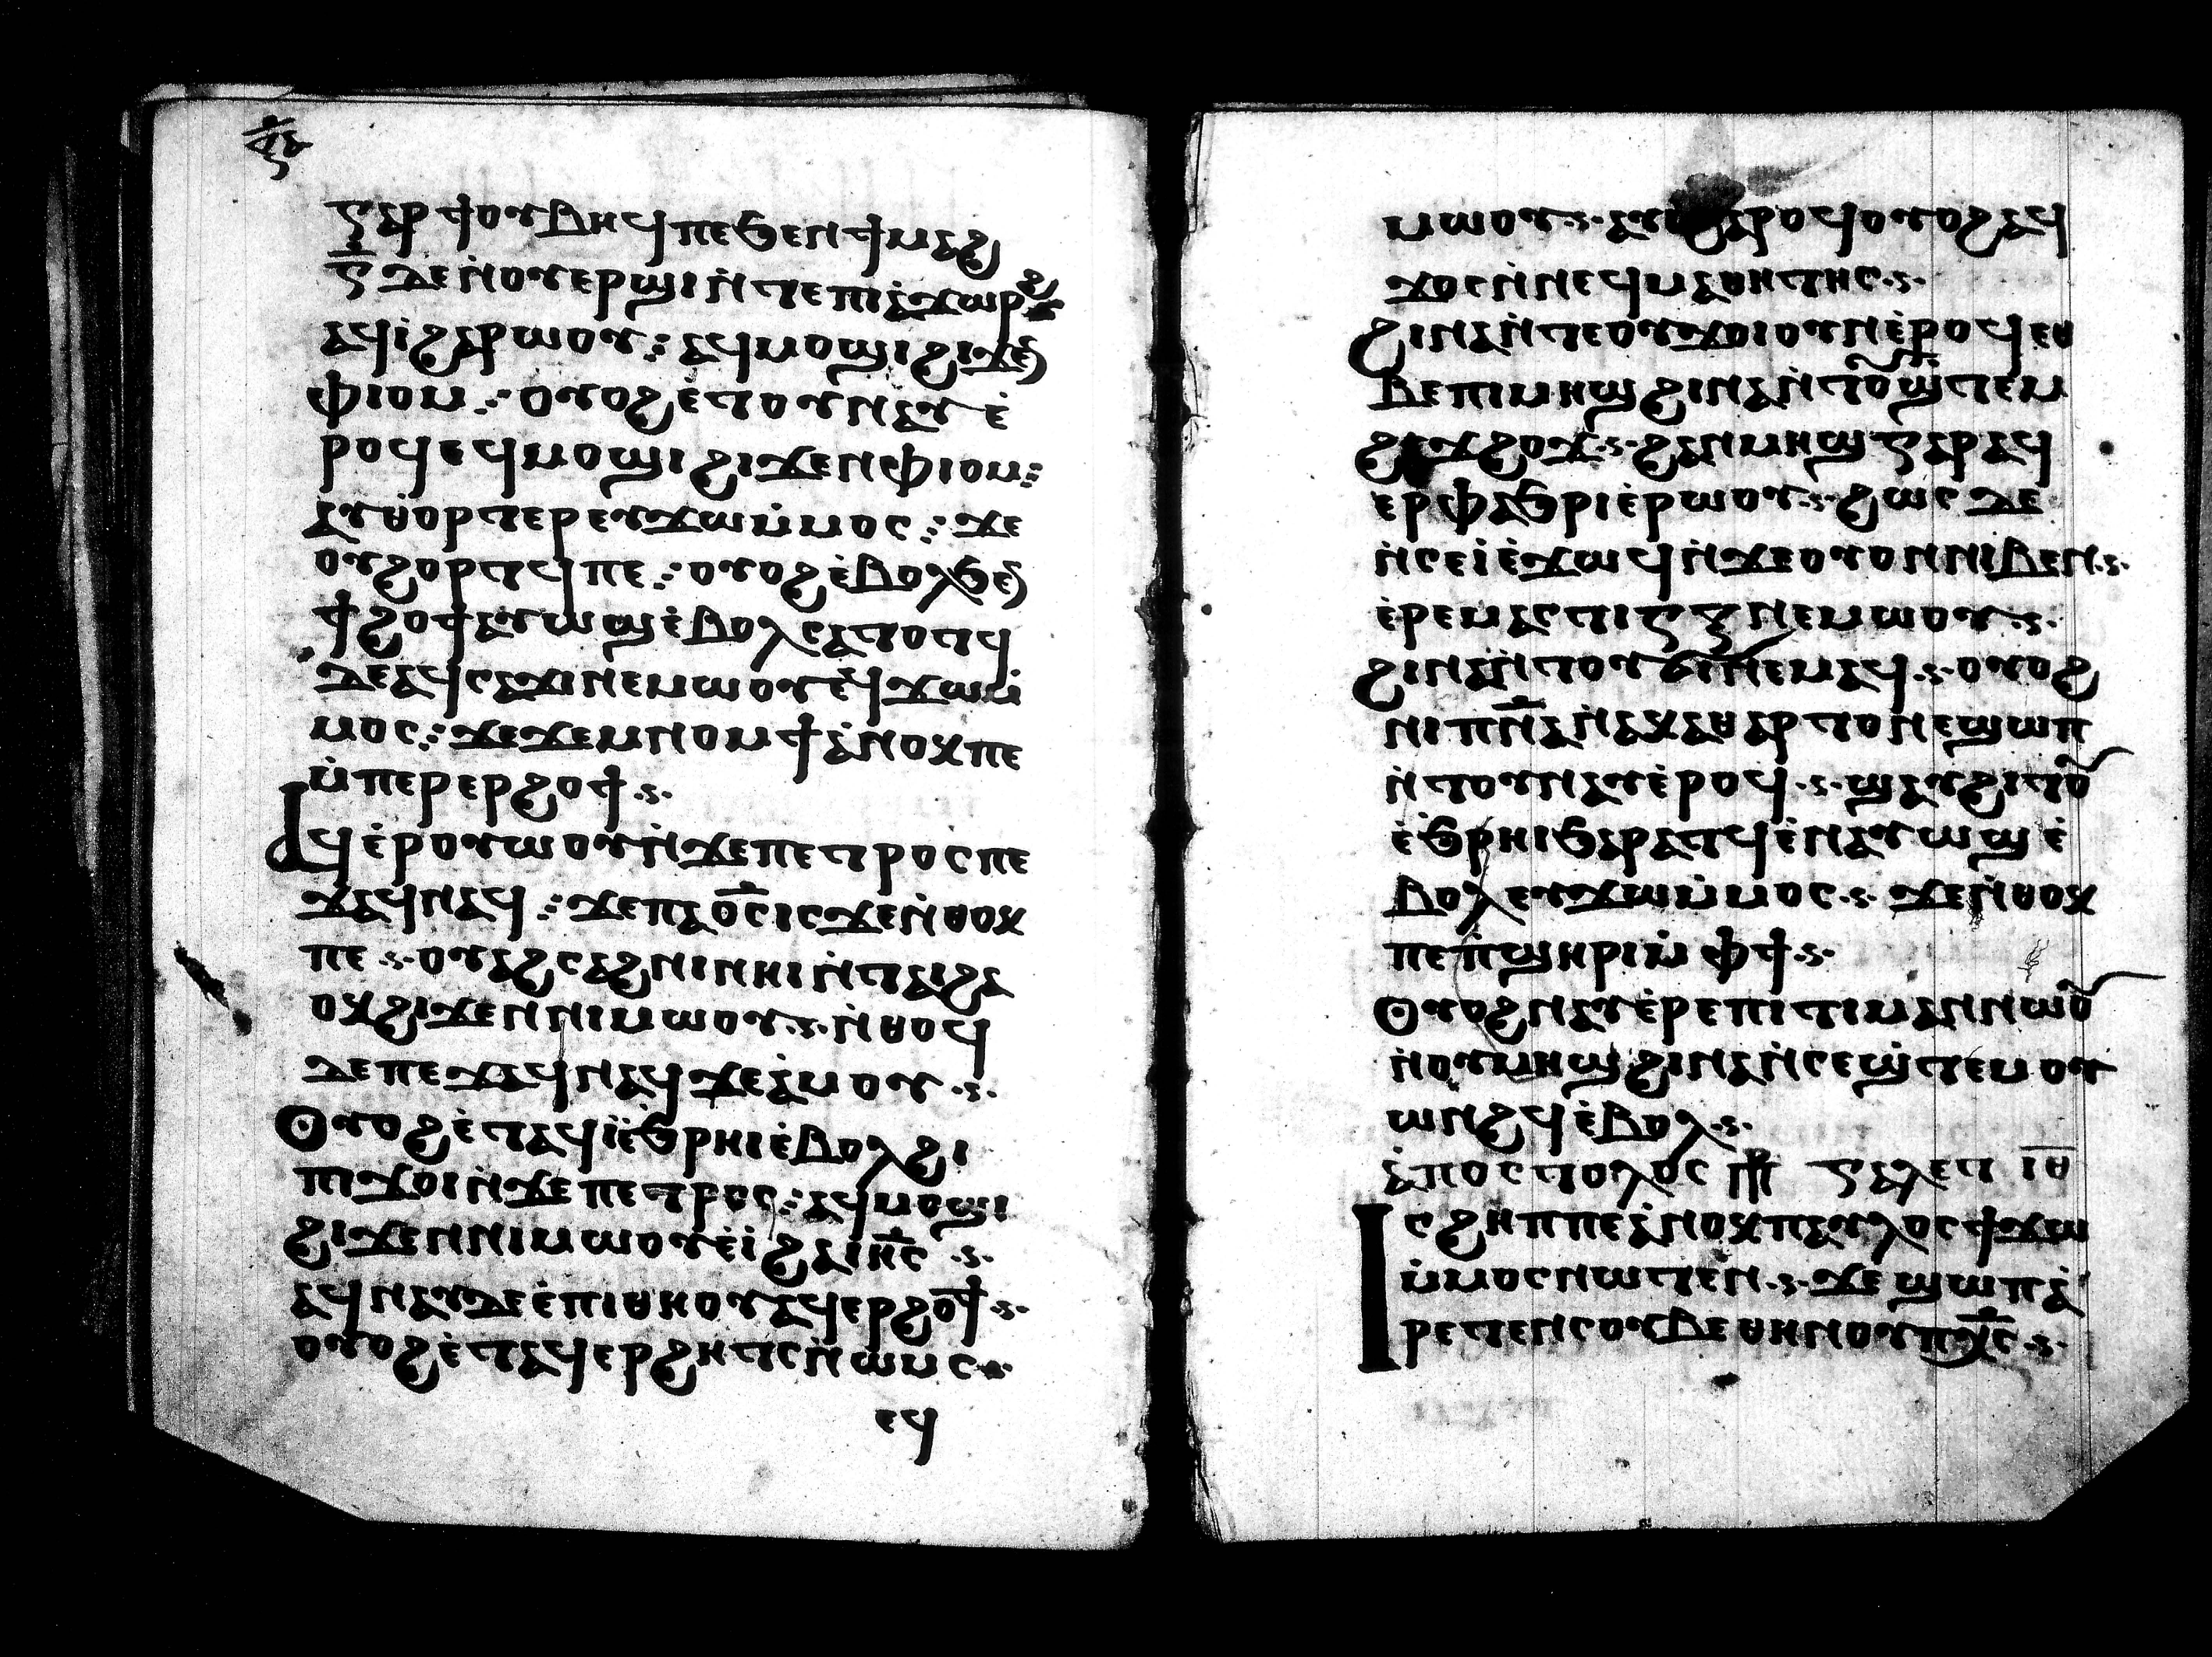 ⲅⲁⲣ ϯⲟⲩⲃⲏϥⲡⲉϧⲉⲛϯⲙⲁϩ
ⲇ̅ ⲇⲉⲛ̇ⲟⲩⲉⲣϣⲓⲛ̇ⲧⲉⲡⲓⲉ̇ϫⲱⲣϩ
ⲁϥⲓ̇ϩⲁⲣⲱⲟⲩ⁝ ⲁϥⲙⲟϣⲓϩⲓϫⲉⲛ
ⲫⲓⲟⲙ⁝ ⲟⲩⲟϩⲉ̇ⲧⲟⲩⲛⲁⲩ ⲉ̇
ⲣⲟϥⲉϥⲙⲟϣⲓ ϩⲓϫⲉⲛⲫⲓⲟⲙ⁝
ⲁⲩϣⲑⲟⲣⲧⲉⲣⲉⲩϫⲱⲙ̇ⲙⲟⲥ⁝ ϫⲉ
ⲟⲩϩⲟⲣⲧϥⲡⲉ⁝ ⲟⲩⲟϩⲉ̇ⲃⲟⲗϧⲉⲛ
ϯϩⲟϯⲁⲩⲱϣⲉ̇ⲃⲟⲗⲥⲁⲧⲟⲧϥ
ⲇⲉⲁϥⲥⲁϫⲓⲛⲉⲙⲱⲟⲩⲉϥϫⲱⲙ̇
ⲙⲟⲥ⁝ ϫⲉϫⲉⲙⲛⲟⲙϯⲁ̇ⲛⲟⲕⲡⲉ
ⲙ̇ⲡⲉⲣⲉⲣϩⲟϯ
ⲁϥⲉ̇ⲣⲟⲩⲱⲟⲩⲛ̇ϫⲉⲡⲉⲧⲣⲟⲥⲡⲉ
ϫⲁϥⲛⲁϥ⁝ ϫⲉⲡⲁⲟ̅ⲥ̅ⲓⲥϫⲉⲛ̇ⲑⲟⲕ
ⲡⲉ ⲟⲩⲁϩⲥⲁϩⲛⲓⲛⲏⲓⲛ̇ⲧⲁⲓϩⲁ
ⲟⲕϩⲓϫⲉⲛⲛⲓⲙⲱⲟⲩ ⲛ̇ⲑⲟϥ
ⲇⲉⲡⲉϫⲁϥⲛⲁϥϫⲉⲁ̇ⲙⲟⲩ
ⲟⲩⲟϩⲉ̇ⲧⲁϥⲓ̇ⲉ̇ϧⲣⲏⲓⲉ̇ⲃⲟⲗϩⲓ
ⲡϫⲟⲓⲛ̇ϫⲉⲡⲉⲧⲣⲟⲥ⁝ ⲁϥⲙⲟϣⲓ
ϩⲓϫⲉⲛⲛⲓⲙⲱⲟⲩⲉ̇ⲓ̇ ϩⲁⲓⲏ̅ⲥ̅
ⲁϥⲛⲁⲩⲇⲉⲉ̇ⲡⲓⲑⲏⲟⲩⲁϥⲉⲣϩⲟϯ
ⲟⲩⲟϩⲉ̇ⲧⲁϥⲉⲣϩⲏⲧⲥⲛ̇ⲱⲙⲥ
ⲉϥ
ⲙⲱⲟⲩ ϩⲁⲣⲟϥⲟⲩⲟϩⲁϥ
ϫⲟⲥⲛ̇ⲛⲉϥⲙⲁⲑⲏⲧⲏⲥ
ϩⲓⲛⲁⲛ̇ⲧⲉⲟⲩϫⲟⲓⲟⲩⲛⲉ̇ⲣⲟϥ ⲉⲑ
ⲃⲉⲡⲓⲙⲏϣ ϩⲓⲛⲁⲛ̇ⲧⲟⲩϣⲧⲉⲙ
ϩⲉϫϩⲱϫ ϩⲁⲛⲙⲏϣ ⲅⲁⲣⲁϥ
ⲉⲣⲫⲁϧⲣⲓⲉ̇ⲣⲱⲟⲩ ϩⲱⲥ ⲇⲉ
ⲛ̇ⲥⲉⲓ̇ⲉ̇ϫⲱϥⲛ̇ϫⲉⲟⲩⲟⲛⲛⲓⲃⲉⲛ
ⲉ̇ⲣⲉⲙⲁⲥⲧⲓⲅⲝ ⲛⲉⲙⲱⲟⲩ
ϩⲓⲛⲁⲛ̇ⲧⲟⲩϭⲓⲛⲉⲙⲁϥ ⲟⲩⲟϩ
ⲛⲓⲡⲛ̅ⲁⲛ̇ⲁⲕⲁⲑⲁⲣⲧⲟⲛⲉϣⲱⲡ
ⲛ̇ⲧⲟⲩⲛⲁⲩⲉ̇ⲣⲟϥ ϣⲁⲩϩⲓⲧⲟⲩ
ⲉ̇ϧⲣⲏⲓϧⲁⲣⲁⲧϥⲉ̇ⲛⲁⲩⲱϣ ⲉ̇
ⲃⲟⲗⲉⲩϫⲱⲙ̇ⲙⲟⲥ ϫⲉⲛ̇ⲑⲟⲕ
ⲡⲉⲡ̇ϣⲏⲣⲓⲙ̇ ⲫϯ
ⲟⲩⲟϩⲛⲁⲩⲉ̇ⲣⲉⲡⲓⲧⲓⲙⲁⲛⲛⲱⲟⲩ
ⲛ̇ⲟⲩⲙⲏϣϩⲓⲛⲁⲛ̇ⲥⲉϣ̇ⲧⲉⲙⲟⲩ
ⲱⲛϩϥⲉ̇ⲃⲟⲗ
ⲁ̇ⲡⲟⲥⲧⲟⲗⲟⲥ ⲅⲁⲗⲉⲧ ⲓ̅ⲑ̅
ⲓⲥϩⲏⲡⲡⲉⲁ̇ⲛⲟⲕⲡⲁⲩⲗⲟⲥϯϫⲱ
ⲙ̇ⲙⲟⲥⲛⲱⲧⲉⲛ ϫⲉ ϣⲱⲡⲁ̇
ⲣⲉⲧⲉⲛⲥⲟⲩⲃⲉⲑⲏⲛⲟⲩⲡⲭ̅ⲥ̅